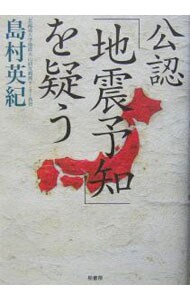 公認
「地震予知」
を疑う
島村英紀
柏書房